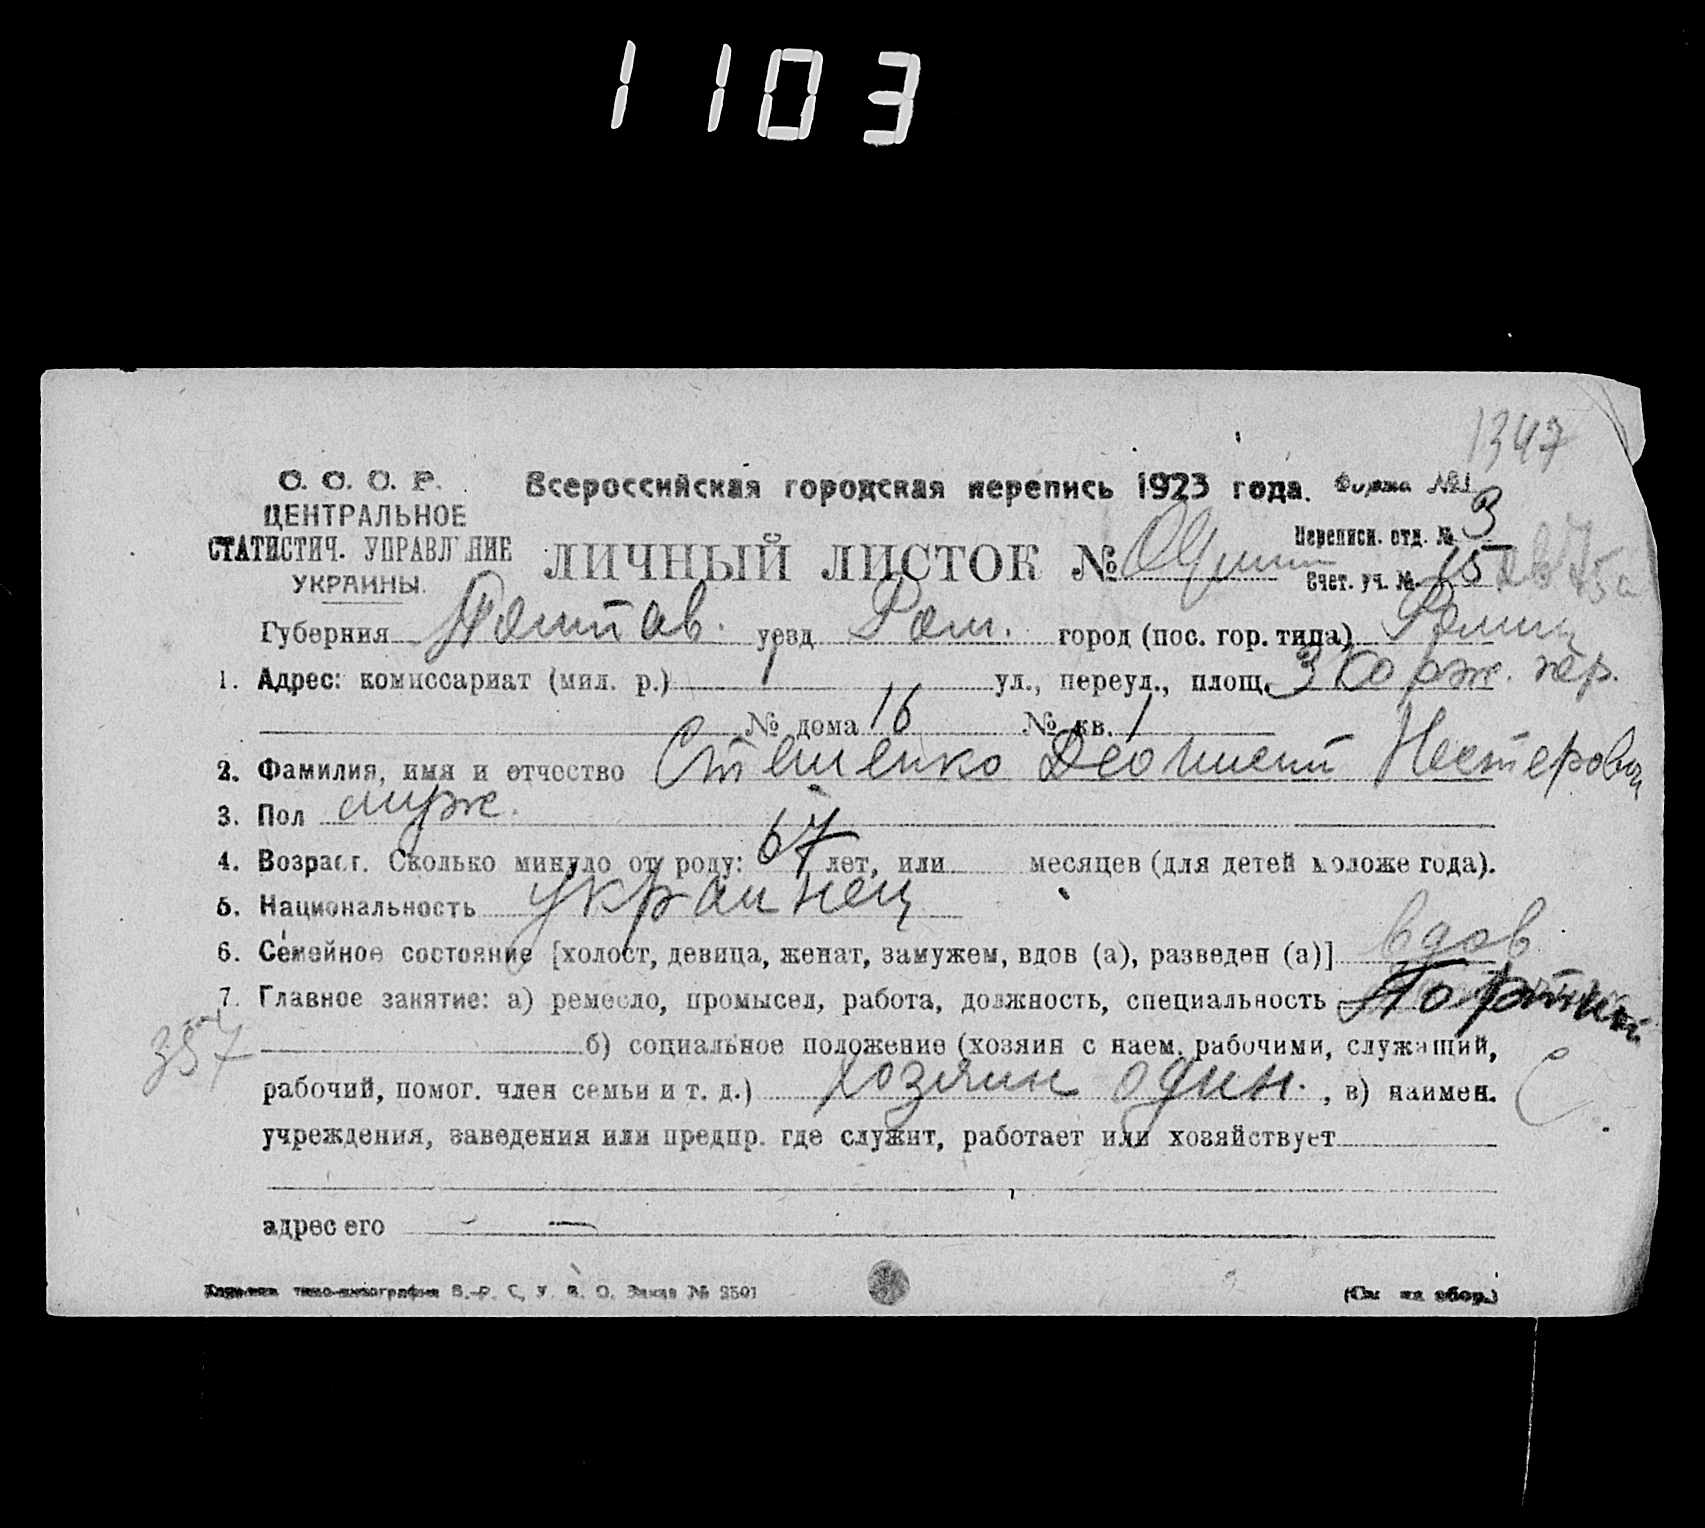 1103
1347
С. С. С. Р. Всероссийская городская перепись 1923 года. Форма №1
ЦЕНТРАЛЬНОЕ
СТАТИСТИЧ. УПРАВЛ НИЕ
УКРАИНЫ.
ЛИЧНЫЙ ЛИСТОК №
Переписн. отд. № 3
Счет. уч. № 15
Губерния Полтав. уезд Ром. город (пос. гор. типа) Ромны
1. Адрес: комиссариат (мил. р.) ул., переул., площ. 3 Корж. пер.
№ дома 16 № кв. 1
2. Фамилия, имя и отчество Стеценко Нестерович
3. Пол муж.
4. Возраст. Сколько минуло от роду: 67 лет, или месяцев (для детей моложе года).
5. Национальность украинец
6. Семейное состояние [холост, девица, женат, замужем, вдов (а), разведен (а)] вдов
7. Главное занятие: а) ремесло, промысел, работа, должность, специальность Портной
357
б) социальное положение (хозяин с наем. рабочими, служащий,
рабочий, помог. член семьи и т. д.) хозяин один. , в) наимен. С
учреждения, заведения или предпр. где служит, работает или хозяйствует
адрес его —
В.-Р. С. У. В. О. Заказ № 2501
(См на обор.)